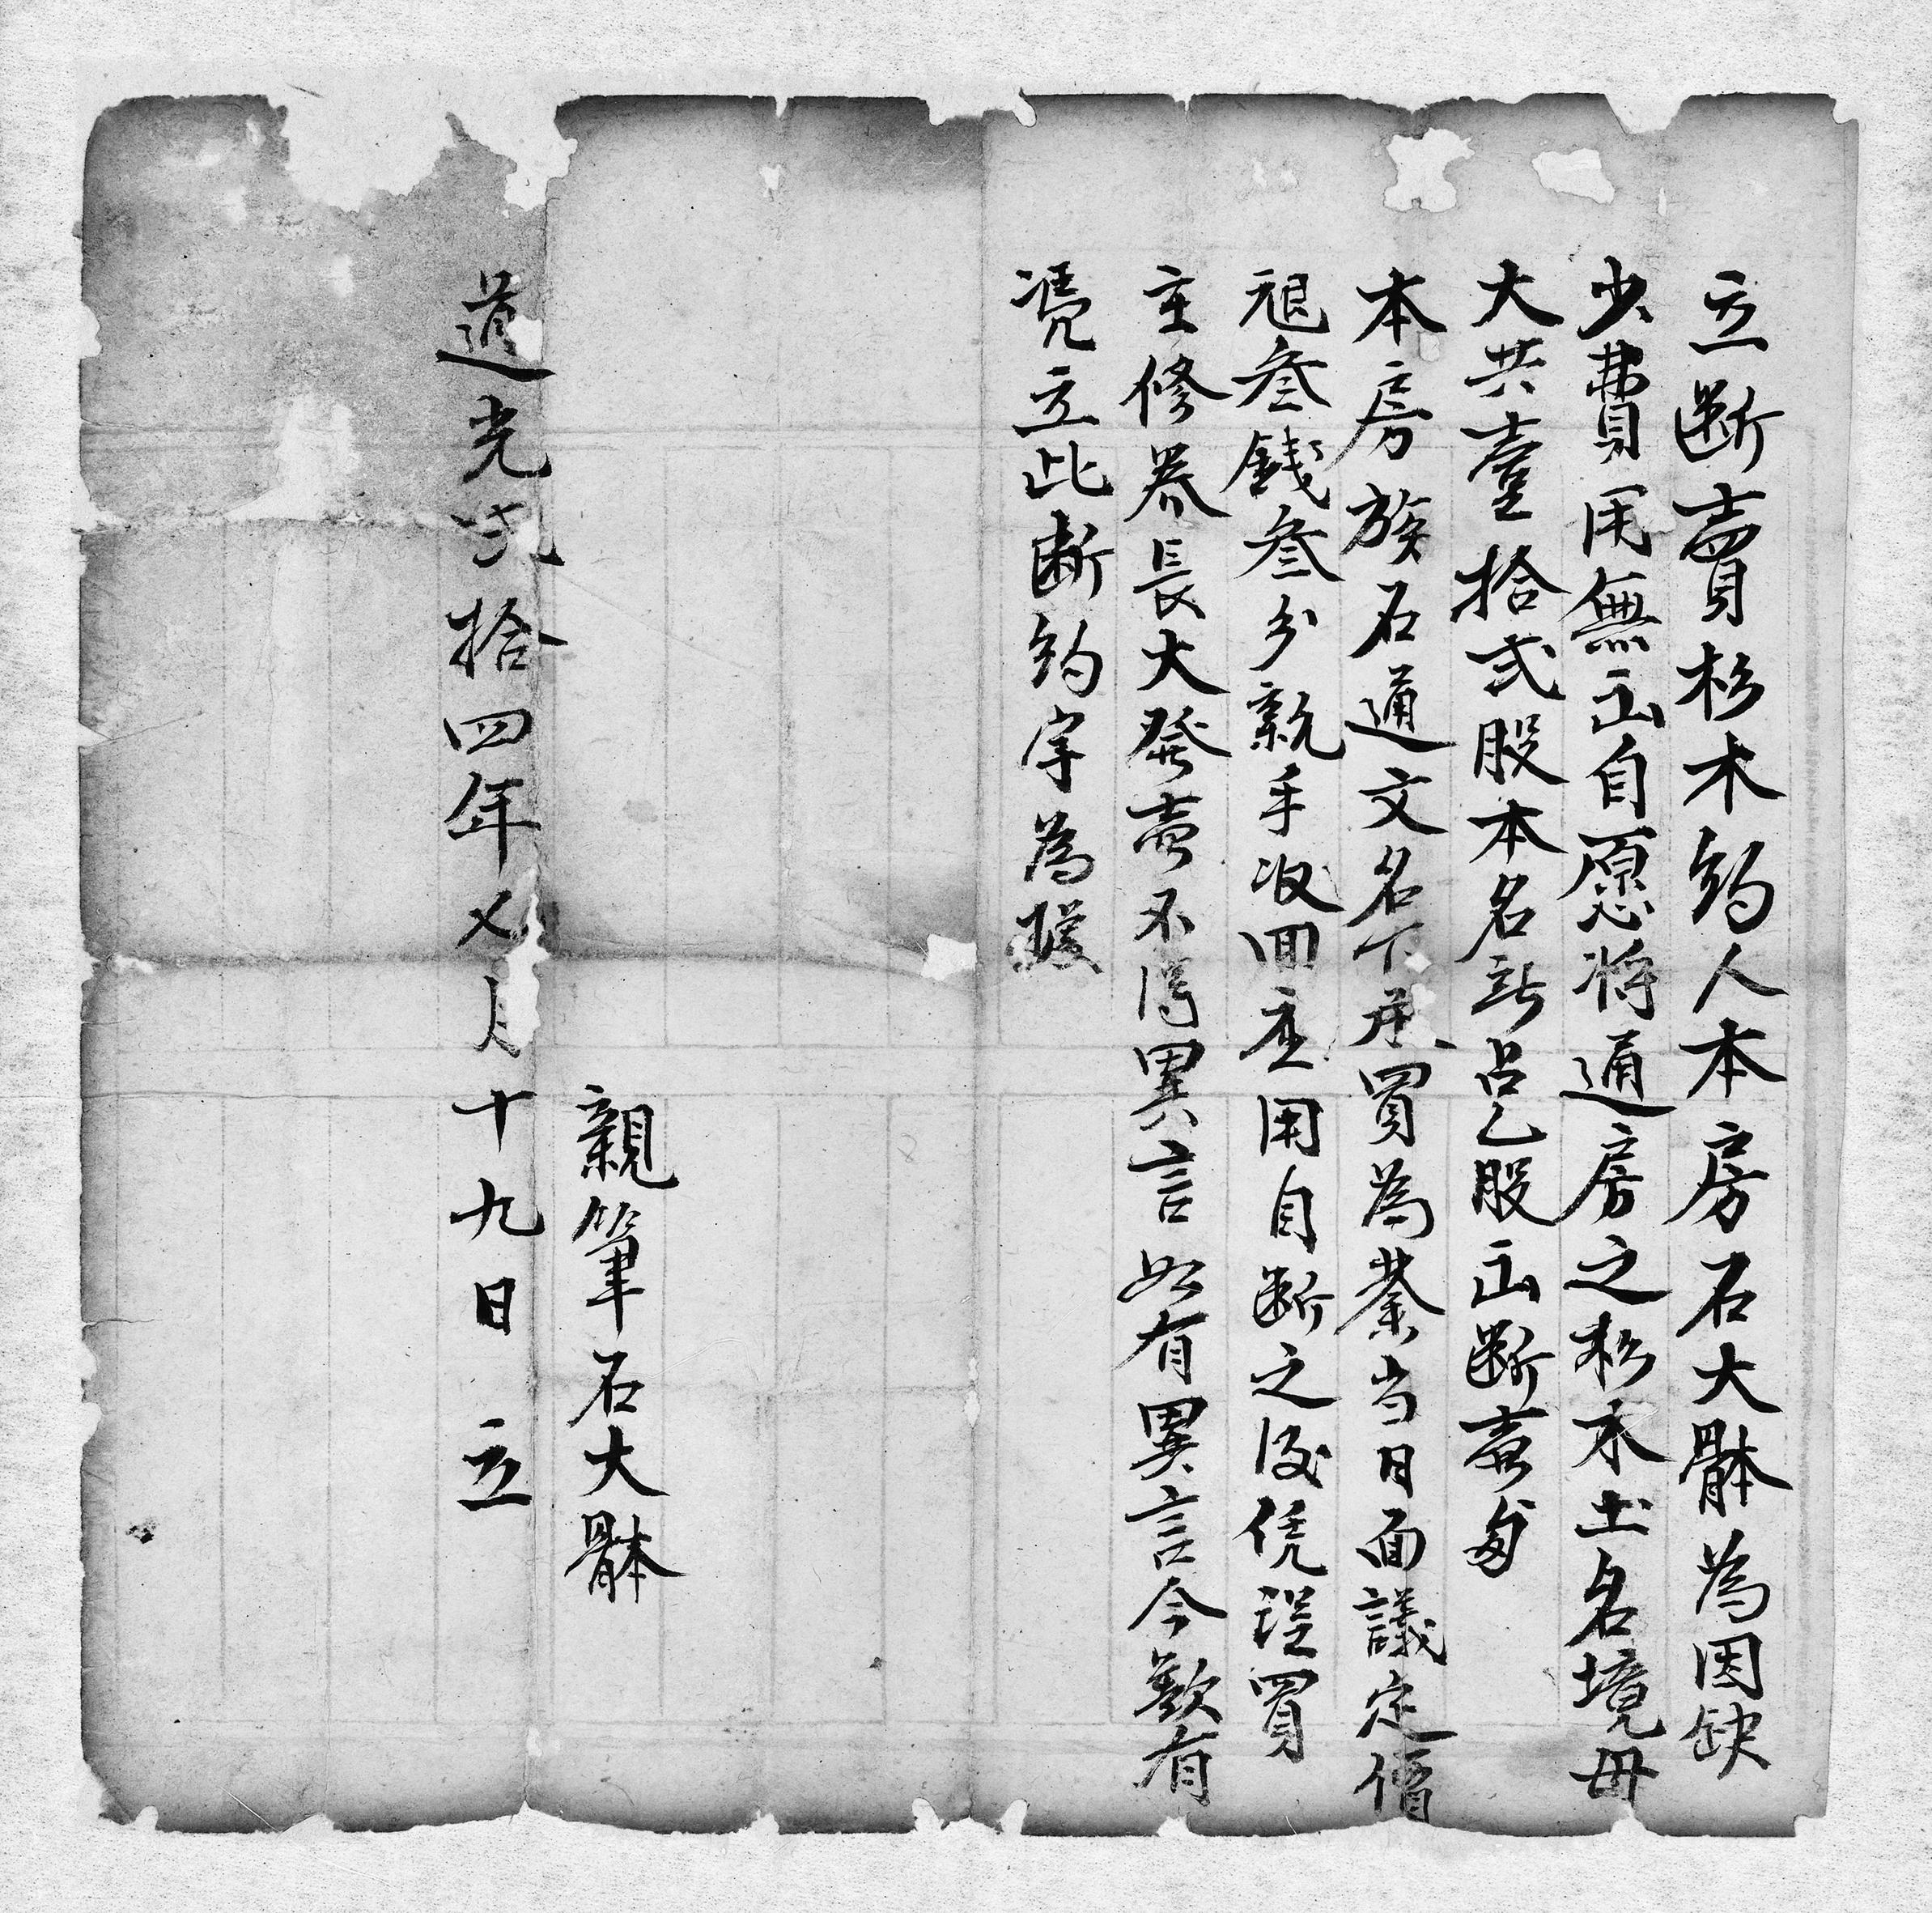 立断賣杉木約人本房石大骵為因缺
少費用無出自愿将通房之杉木土名境毋
大共壹拾弍股本名所占乙股出断賣與
本房族石通文名下承買為業当日面議定價
艮叁錢叁分親手收回應用自断之後凭從買
主修养長大發賣不得異言如有異言今欲有
凴立此断約字為據
親筆石大骵
道光弍拾四年乂月十九日 立